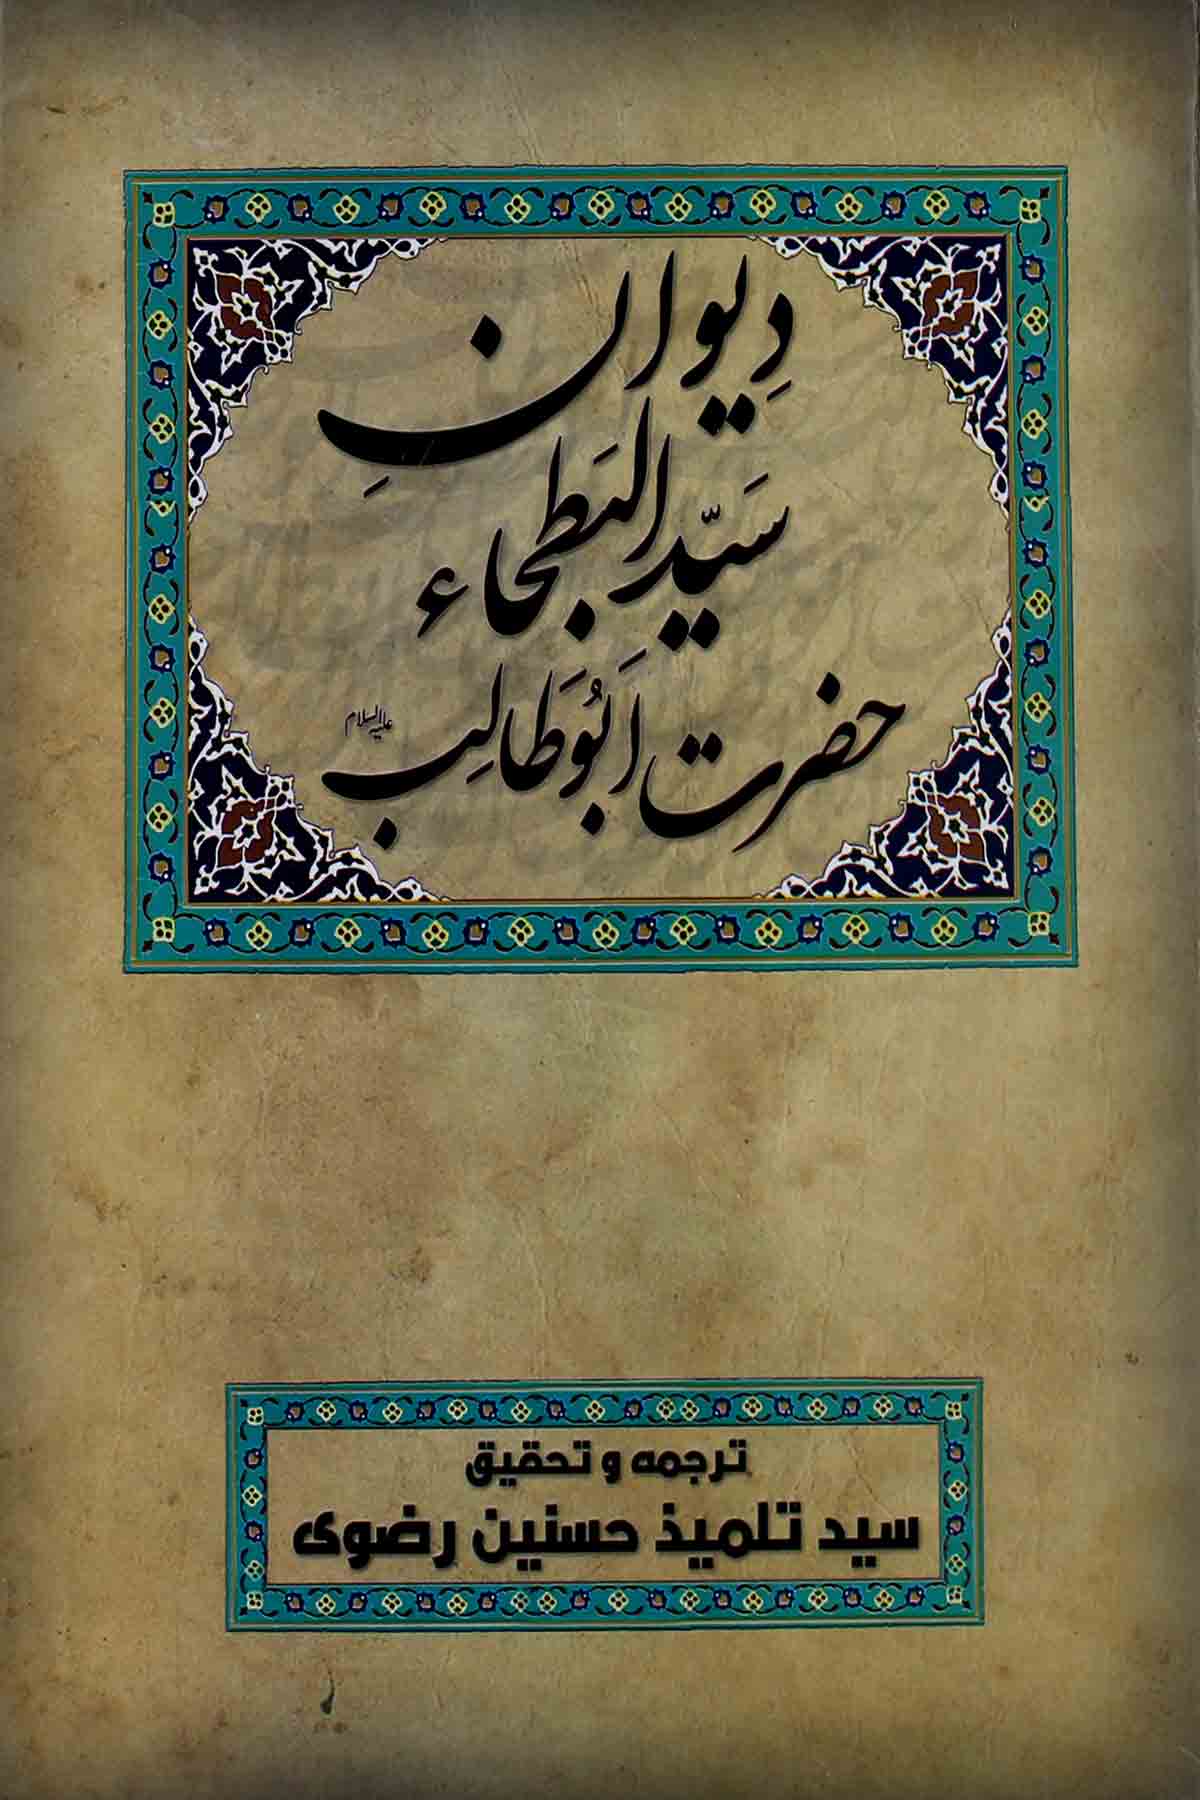 دِیوانِ
سَیّدالبَطحاءِ
حضرت اَبُوطَالِب علیہ السلام
ترجمه و تحقیق
سید تلمیذ حسنین رضوی